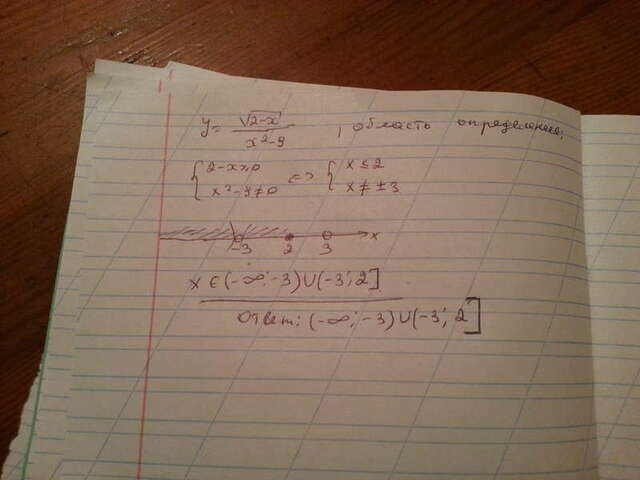 y= √2-x / x²-9 , область определения:
{ 2-x≥0 x²-9≠0 <=> { x≤2 x≠±3
-3 2 3 x
x∈(-∞;-3)∪(-3;2]
Ответ: (-∞;-3)∪(-3;2]